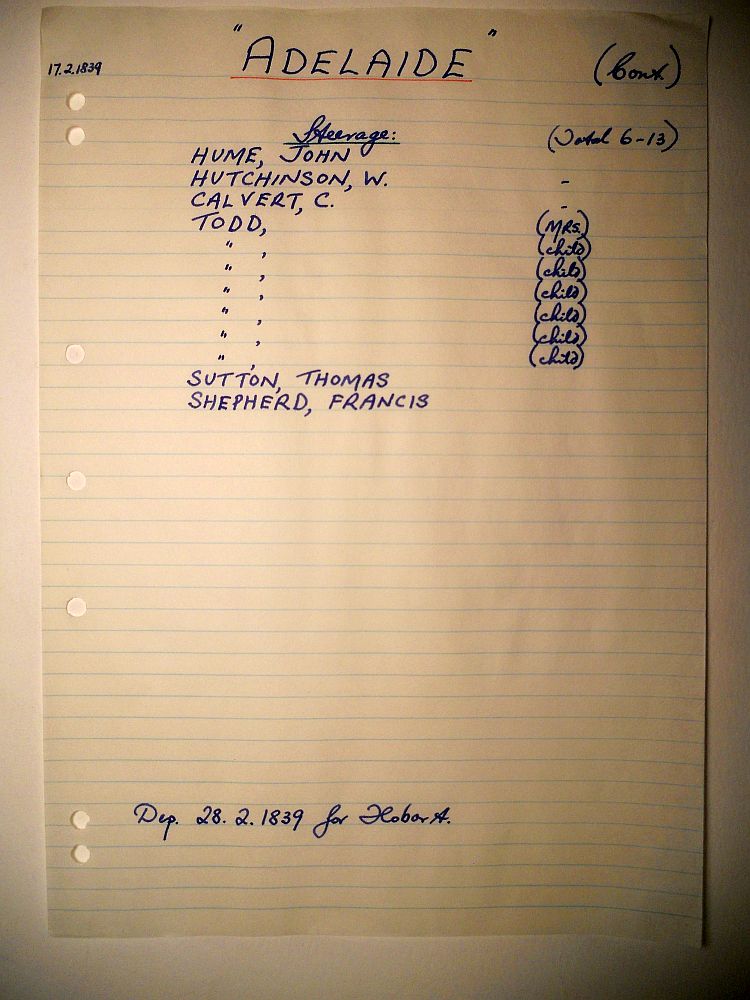 17.2.1839 "ADELAIDE" (Cont.)
Steerage: (Total 6-13)
HUME, JOHN
HUTCHINSON, W. -
CALVERT, C. -
TODD, (MRS.)
" , (child)
" , (child)
" , (child)
" , (child)
" , (child)
" , (child)
SUTTON, THOMAS
SHEPHERD, FRANCIS
Dep. 28. 2. 1839 for Hobart.